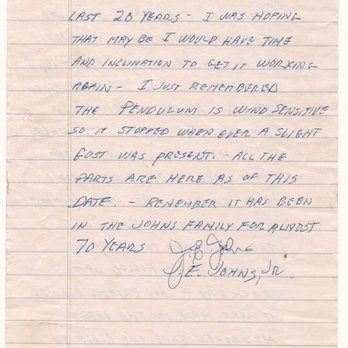 LAST 20 YEARS - I WAS HOPING
THAT MAY BE I WOULD HAVE TIME
AND INCLINATION TO GET IT WORKING
AGAIN - I JUST REMEMBERED
THE PENDULUM IS WIND SENSITIVE
SO IT STOPPED WHEN EVER A SLIGHT
GUST WAS PRESENT. - ALL THE
PARTS ARE HERE AS OF THIS
DATE. - REMEMBER IT HAS BEEN
IN THE JOHNS FAMILY FOR ALMOST
70 YEARS
J. E. JOHNS, JR.